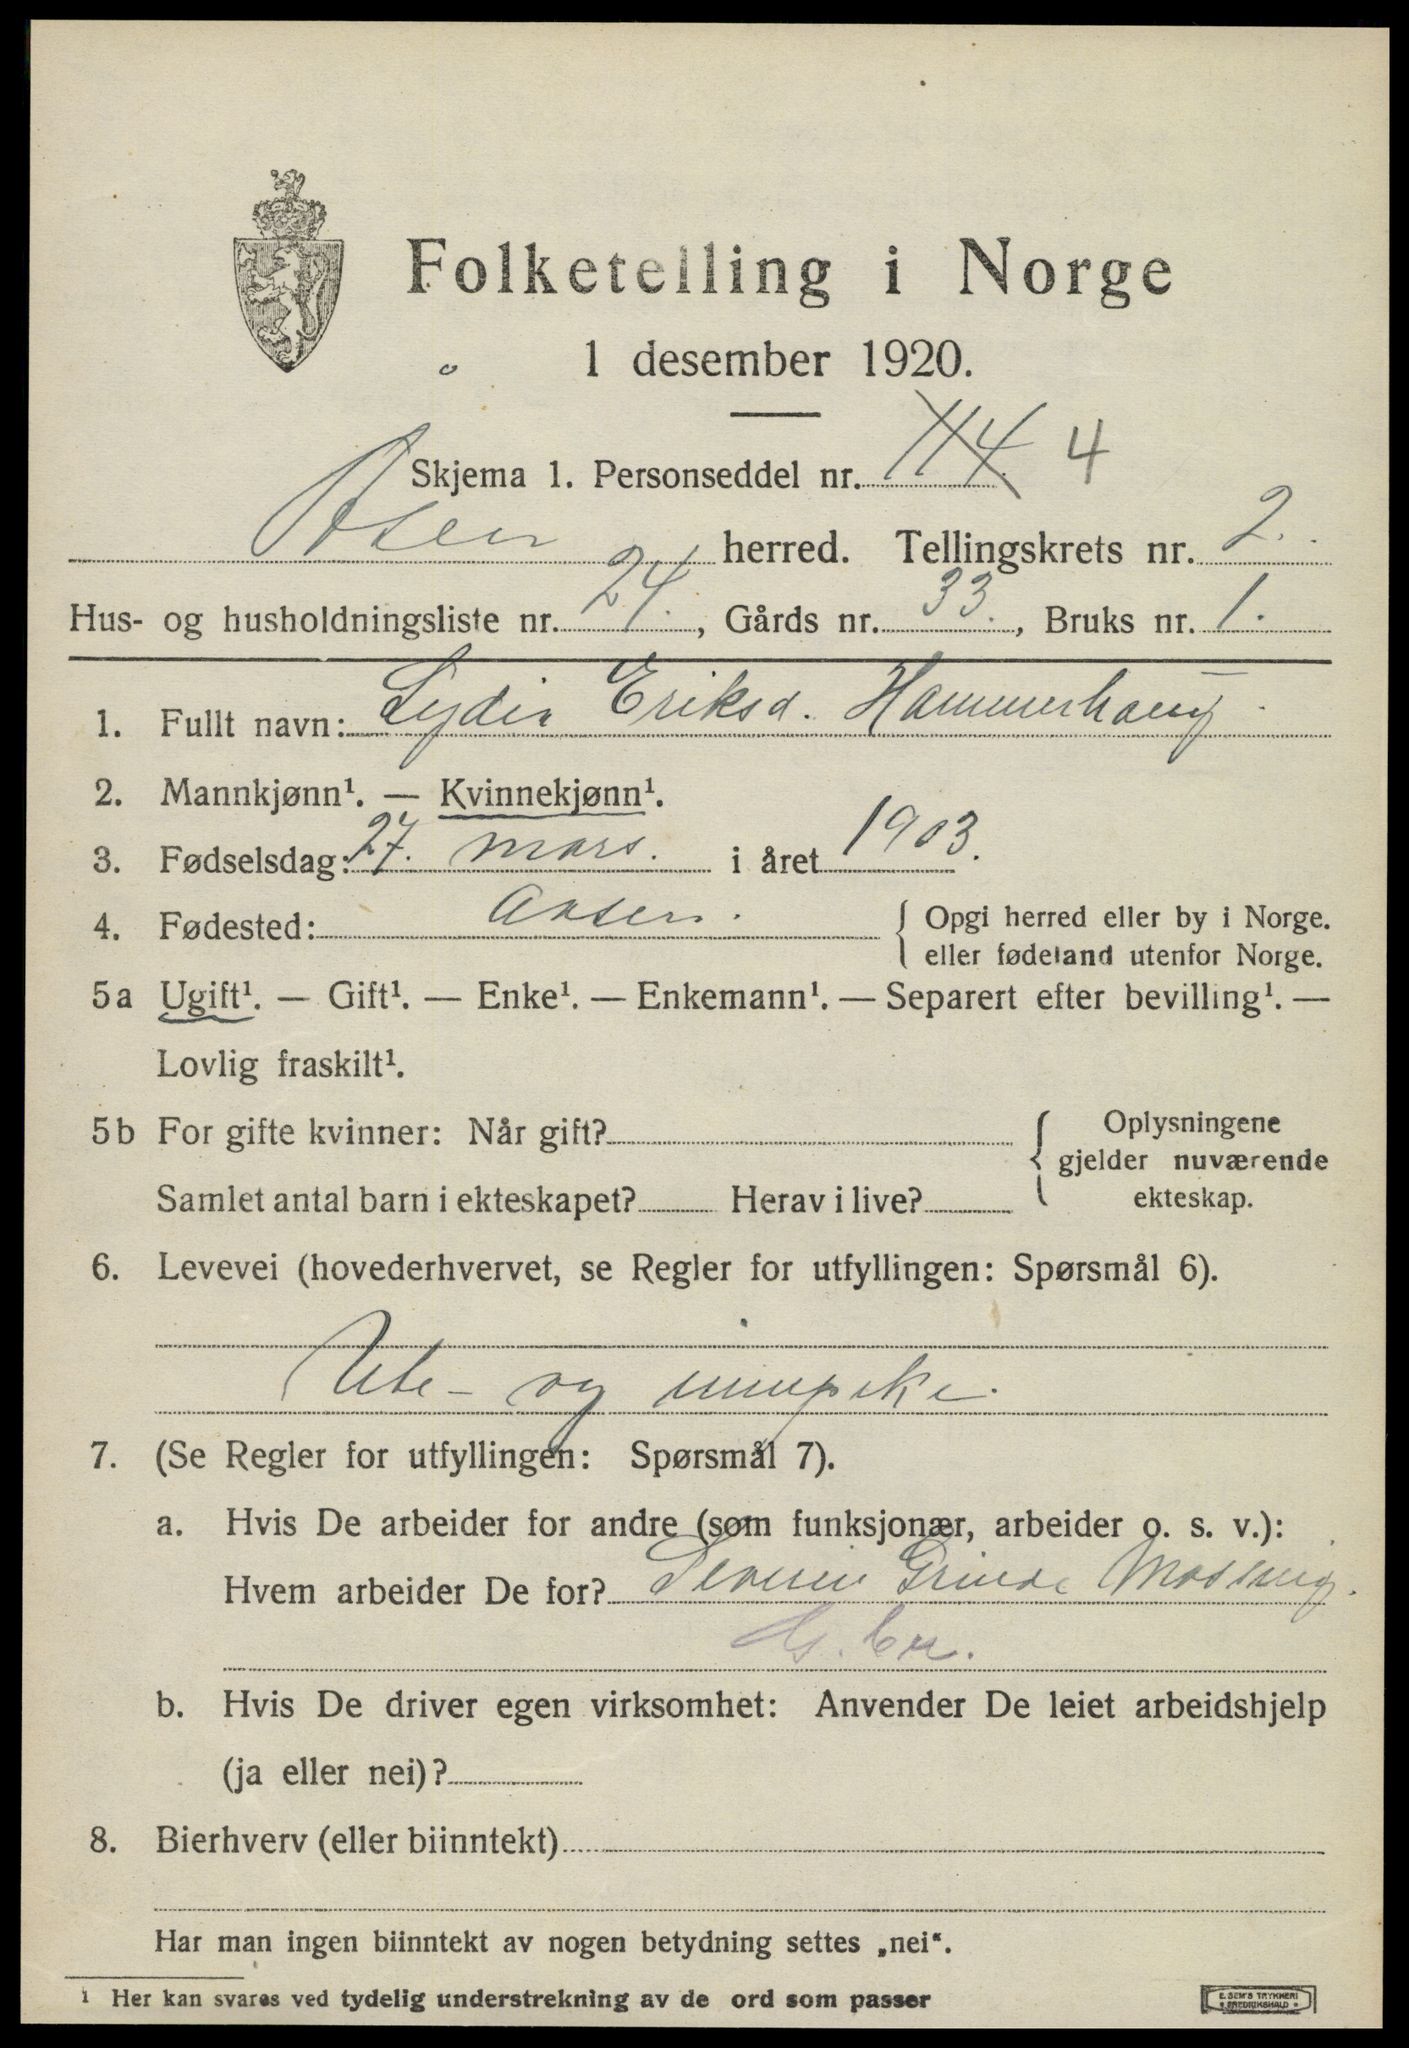 Folketelling i Norge
1 desember 1920.
Skjema 1. Personseddel nr. 114 4
Åsen herred. Tellingskrets nr. 2.
Hus- og husholdningsliste nr. 24., Gårds nr. 33., Bruks nr. 1.
1. Fullt navn: Lydia Eriksd. Hammerhaug
2. Mannkjønn¹. — Kvinnekjønn¹.
3. Fødselsdag: 27. mars. i året 1903.
4. Fødested: Aasen. Opgi herred eller by i Norge.
eller fødeland utenfor Norge.
5a Ugift¹. — Gift¹. — Enke¹. — Enkemann¹. — Separert efter bevilling¹. —
Lovlig fraskilt¹.
5b For gifte kvinner: Når gift? Oplysningene
gjelder nuværende
Samlet antal barn i ekteskapet? Herav i live? ekteskap.
6. Levevei (hovederhvervet, se Regler for utfyllingen: Spørsmål 6).
Ute- og innpike.
7. (Se Regler for utfyllingen: Spørsmål 7).
a. Hvis De arbeider for andre (som funksjonær, arbeider o. s. v.):
Hvem arbeider De for? Severin Grinde Mossing.
b. Hvis De driver egen virksomhet: Anvender De leiet arbeidshjelp
(ja eller nei)?
8. Bierhverv (eller biinntekt)
Har man ingen biinntekt av nogen betydning settes „nei“.
¹ Her kan svares ved tydelig understrekning av de ord som passer
E. SEM'S TRYKKERI
FREDRIKSHALD